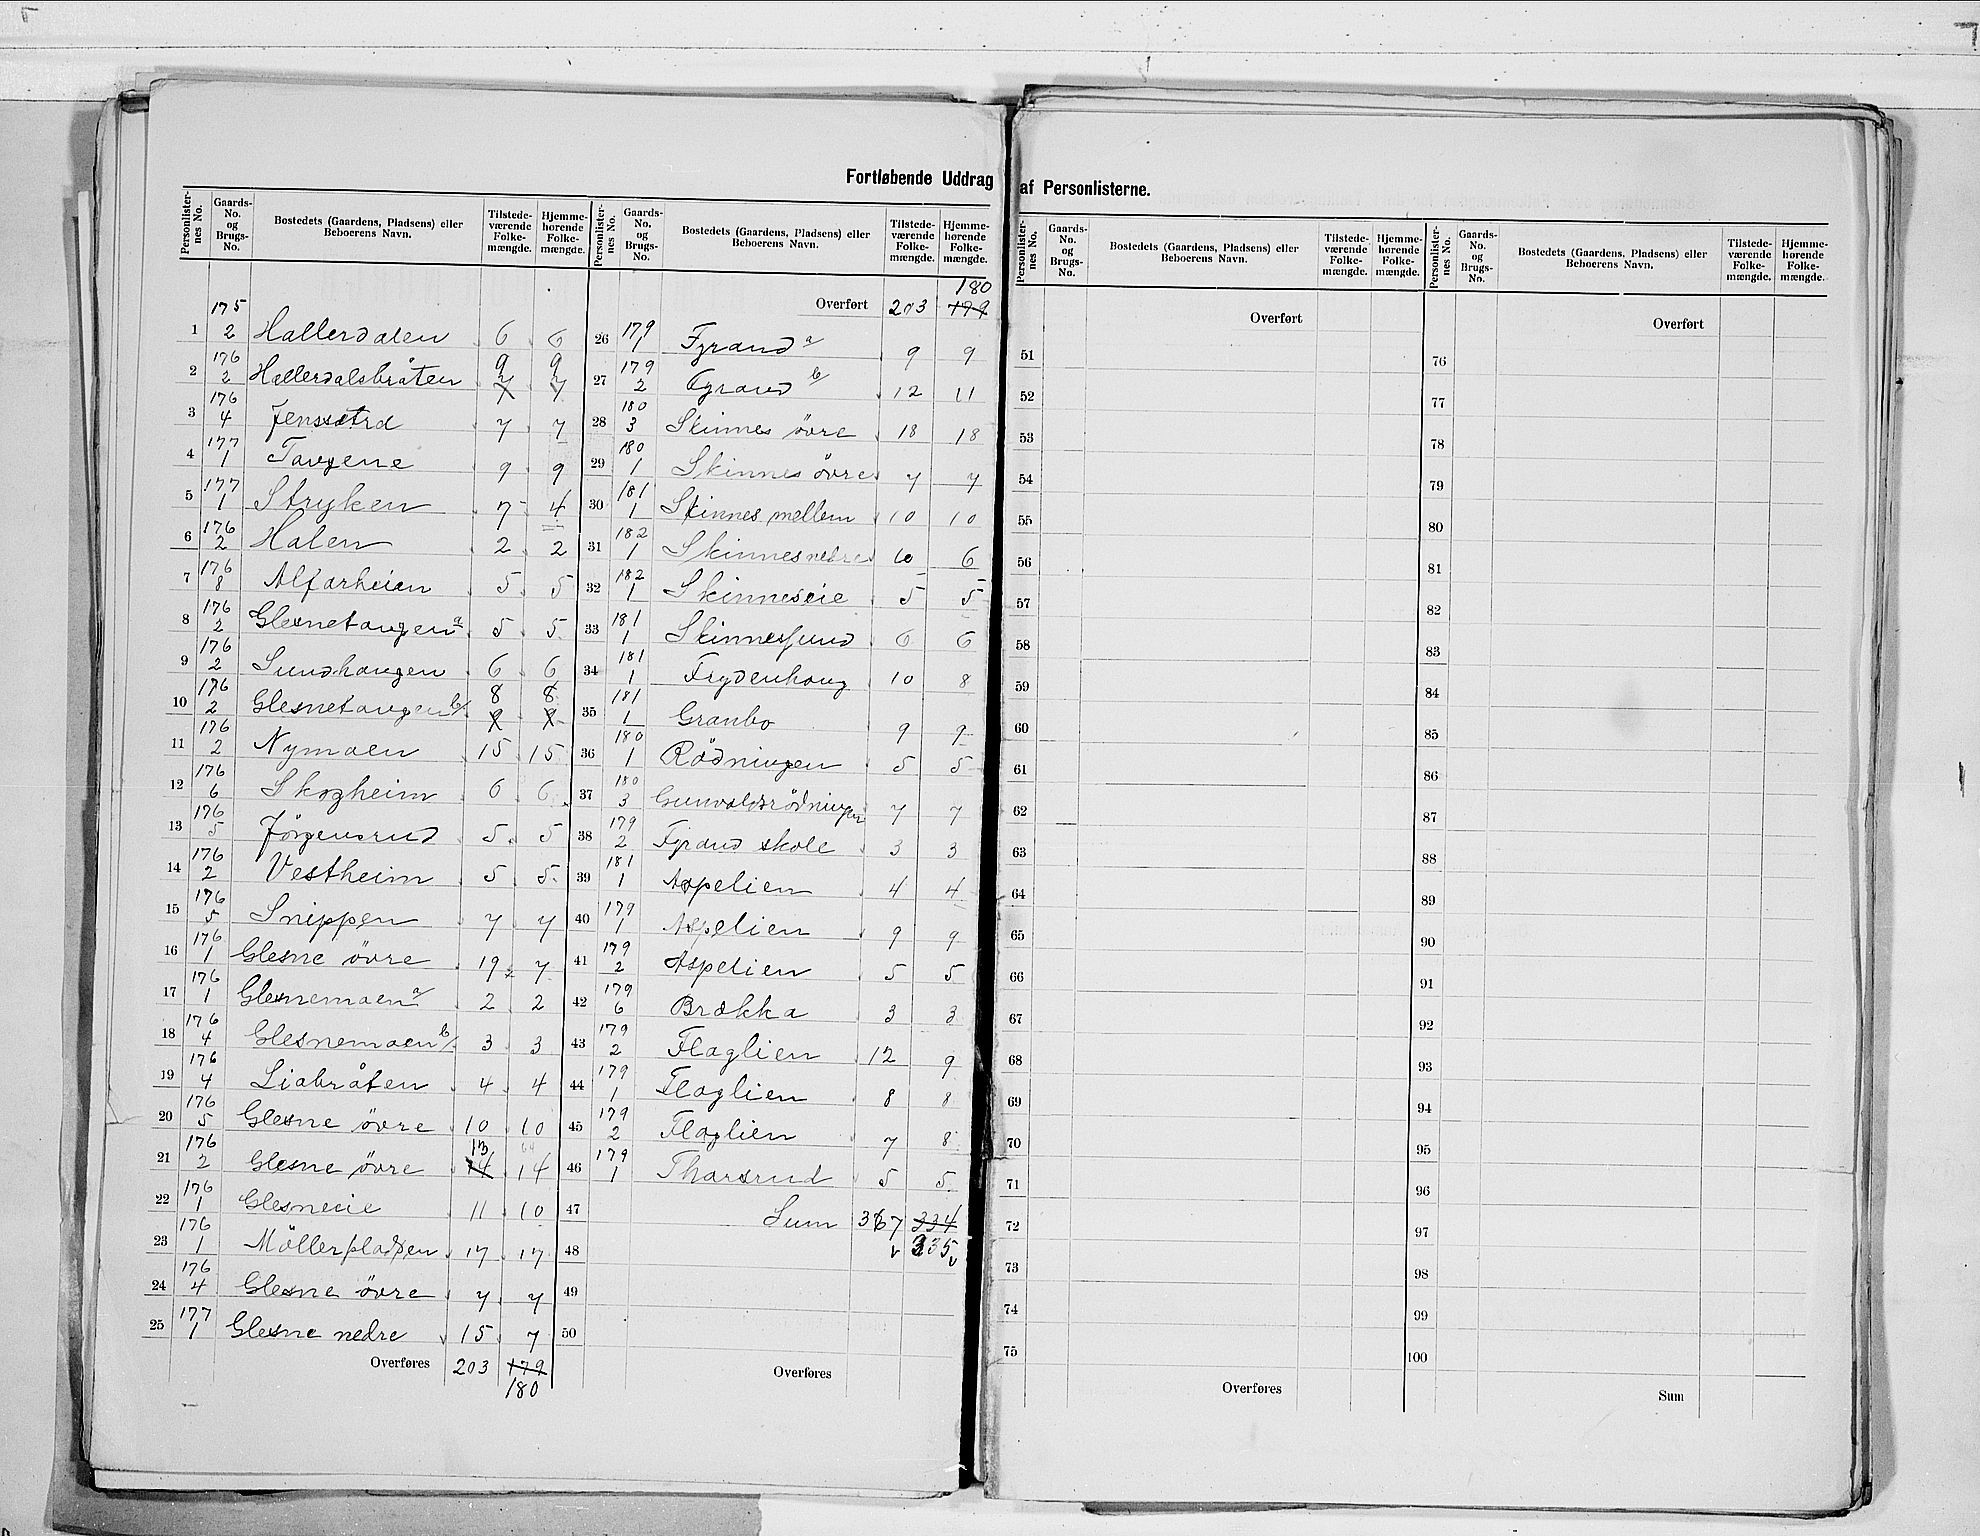 Fortløbende Uddrag af Personlisterne.
Personlisternes No. | Gaards-No. og Brugs-No. | Bostedets (Gaardens, Pladsens) eller Beboerens Navn. | Tilstedeværende Folkemængde. | Hjemmehørende Folkemængde.
1 | 175 2 | Hallerdalen | 6 | 6
2 | 176 2 | Hallerdalsbråten | 9 7 | 9 7
3 | 176 4 | Jenssætrd | 7 | 7
4 | 177 1 | Tangene | 9 | 9
5 | 177 1 | Stryken | 7 | 4
6 | 176 2 | Halen | 2 | 2
7 | 176 8 | Alfarheien | 5 | 5
8 | 176 2 | Glesnetangen a | 5 | 5
9 | 176 2 | Sundhaugen | 6 | 6
10 | 176 2 | Glesnetangen b/ | 8 9 | 8 9
11 | 176 2 | Nymoen | 15 | 15
12 | 176 6 | Skogheim | 6 | 6
13 | 176 5 | Jörgensrud | 5 | 5
14 | 176 2 | Vestheim | 5 | 5
15 | 176 5 | Snippen | 7 | 7
16 | 176 1 | Glesne övre | 19 | 7
17 | 176 1 | Glesnemoen a/ | 2 | 2
18 | 176 4 | Glesnemoen b/ | 3 | 3
19 | 176 4 | Liabråten | 4 | 4
20 | 176 5 | Glesne övre | 10 | 10
21 | 176 2 | Glesne övre | 13 14 | 14
22 | 176 1 | Glesneeie | 11 | 10
23 | 176 1 | Möllerpladsen | 17 | 17
24 | 176 4 | Glesne övre | 7 | 7
25 | 177 1 | Glesne nedre | 15 | 7
Overføres 203 179
180
Personlisternes No. | Gaards-No. og Brugs-No. | Bostedets (Gaardens, Pladsens) eller Beboerens Navn. | Tilstedeværende Folkemængde. | Hjemmehørende Folkemængde.
180
Overført 203 179
26 | 179 1 | Fyrand a | 9 | 9
27 | 179 2 | Fyrand b/ | 12 | 11
28 | 180 3 | Skinnes övre | 18 | 18
29 | 180 1 | Skinnes övre | 7 | 7
30 | 181 1 | Skinnes mellem | 10 | 10
31 | 182 1 | Skinnes nedre | 10 | 6
32 | 182 1 | Skinneseie | 5 | 5
33 | 181 1 | Skinnessund | 6 | 6
34 | 181 1 | Frydenhaug | 10 | 8
35 | 181 1 | Granbo | 9 | 9
36 | 180 1 | Rödningen | 5 | 5
37 | 180 3 | Gunvaldsrödningen | 7 | 7
38 | 179 2 | Fyrand skole | 3 | 3
39 | 181 1 | Aspelien | 4 | 4
40 | 179 1 | Aspelien | 9 | 9
41 | 179 2 | Aspelien | 5 | 5
42 | 179 6 | Brækka | 3 | 3
43 | 179 2 | Flaglien | 12 | 9
44 | 179 1 | Flaglien | 8 | 8
45 | 179 2 | Flaglien | 7 | 8
46 | 179 1 | Tharsrud | 5 | 5
47 | Sum | 367 | 334
48 | 335
49
50
Overføres
Personlisternes No. | Gaards-No. og Brugs-No. | Bostedets (Gaardens, Pladsens) eller Beboerens Navn. | Tilstedeværende Folkemængde. | Hjemmehørende Folkemængde.
Overført
51
52
53
54
55
56
57
58
59
60
61
62
63
64
65
66
67
68
69
70
71
72
73
74
75
Overføres
Personlisternes No. | Gaards-No. og Brugs-No. | Bostedets (Gaardens, Pladsens) eller Beboerens Navn. | Tilstedeværende Folkemængde. | Hjemmehørende Folkemængde.
Overført
76
77
78
79
80
81
82
83
84
85
86
87
88
89
90
91
92
93
94
95
96
97
98
99
100
Sum